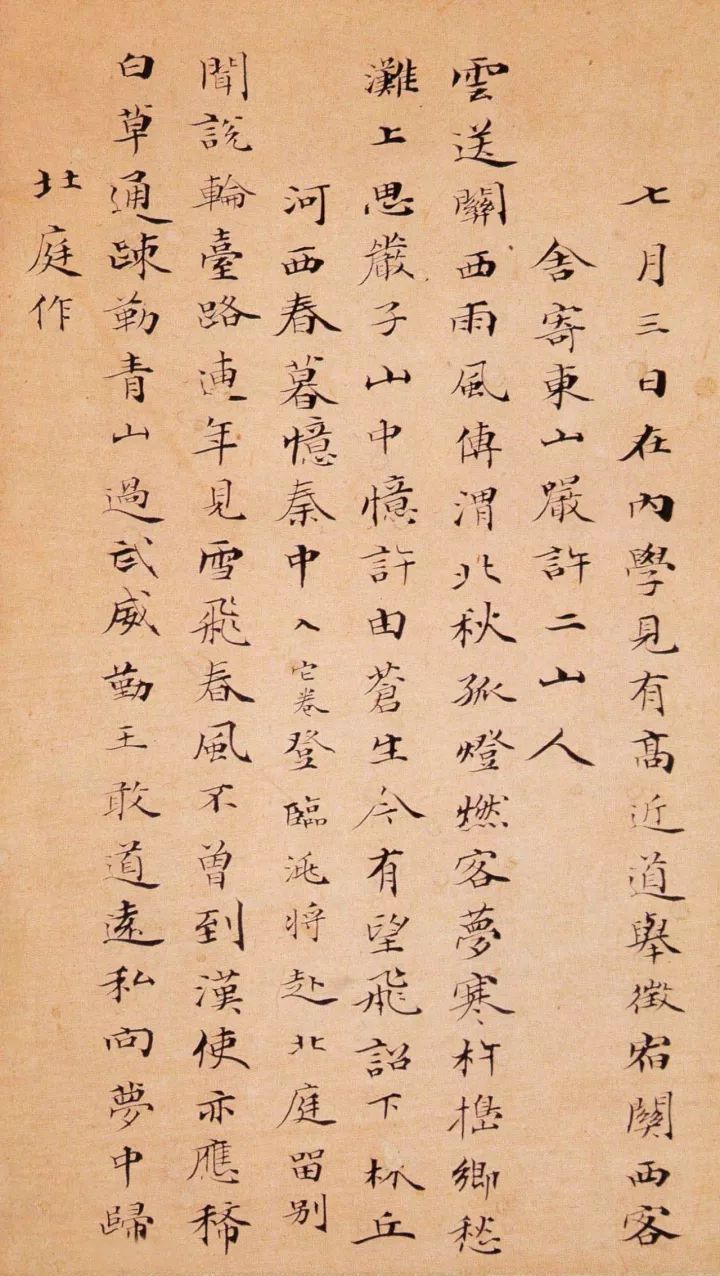 七月三日在內學見有高近道舉徵宿關西客
舍寄東山嚴許二山人
雲送關西雨風傳渭北秋孤燈燃客夢寒杵搗鄉愁
灘上思嚴子山中憶許由蒼生今有望飛詔下林丘
河西春暮憶秦中入它卷登臨洮將赴北庭留別
聞說輪臺路連年見雪飛春風不曾到漢使亦應稀
白草通疎勒青山過武威勤王敢道遠私向夢中歸
北庭作